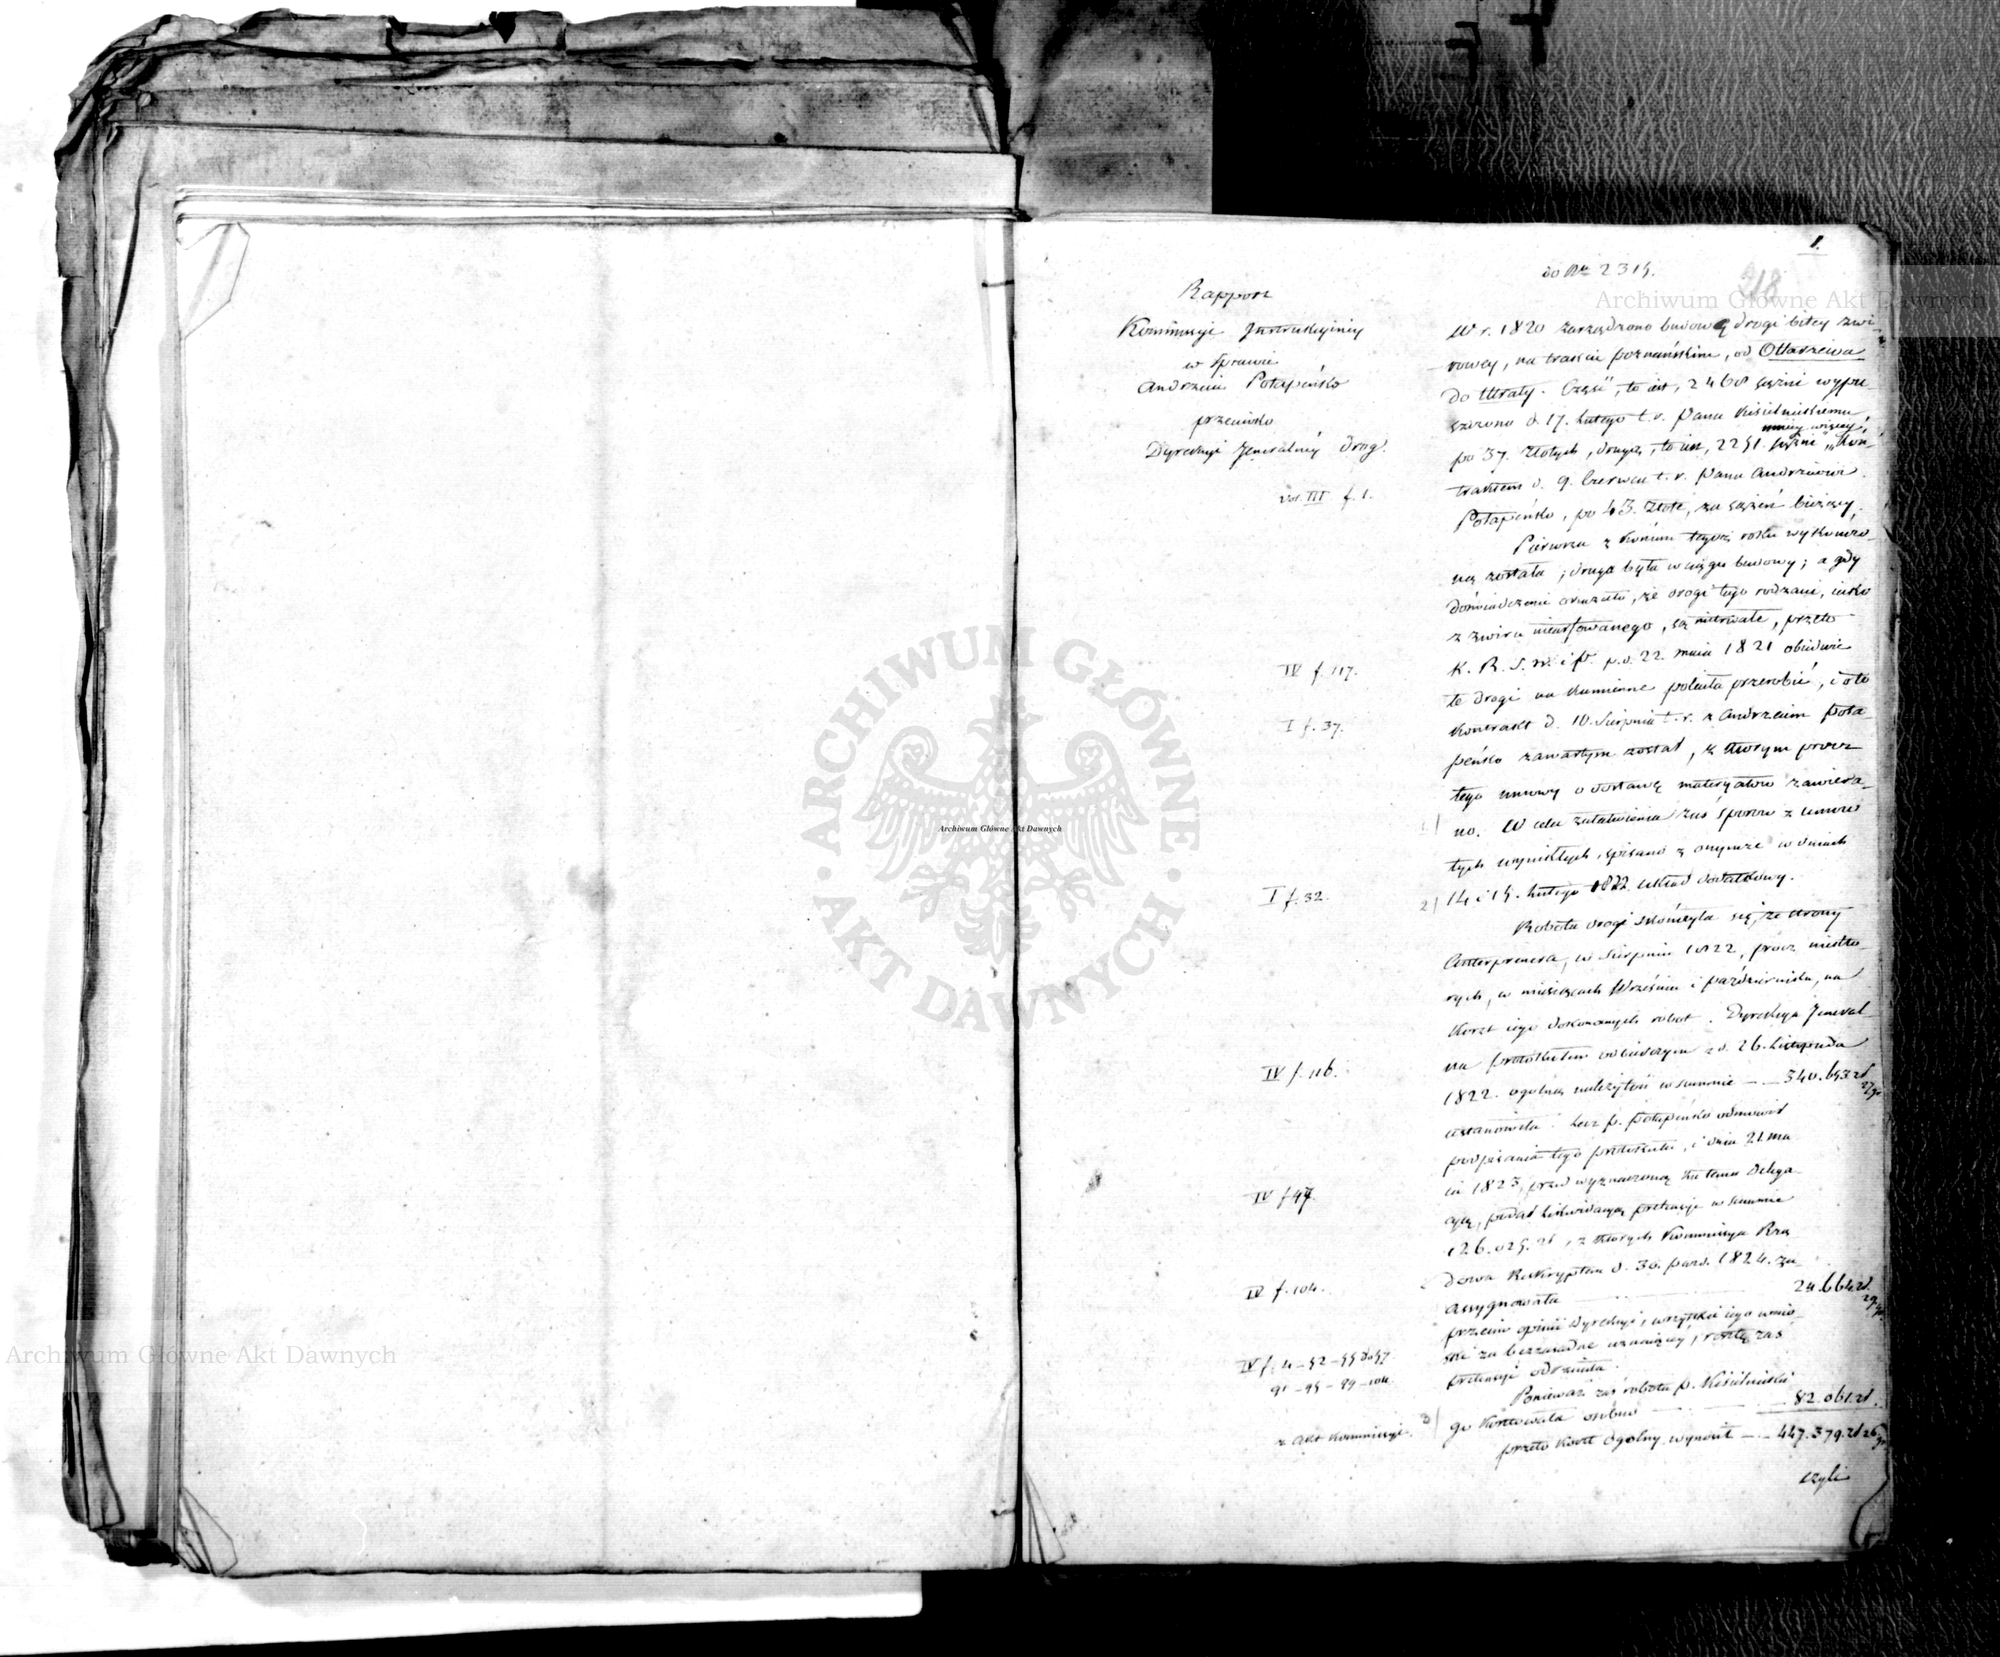 1.
do Nru 2315.
218
Rapport
Kommissyi Instrukcyiney
w sprawie
Andrzeia Potapeńko
przeciwko
Dyrekcyi Jeneralney Dróg.
vol. III f. 1.
IV f. 117.
I f. 37.
I f. 32.
IV f. 116.
IV f 47.
IV f. 104.
IV f. 4 – 52 – 55 do 57
91 – 95 – 99 – 104.
z Akt Kommissyi.
W r. 1820 zarządzono budowę drogi bitey żwi-
rowey, na trakcie poznańskim, od Ołtarzewa
do Utraty. Część, to iest, 2468 sążni wypu-
szczono d. 17. Lutego t. r. Panu Kisielnickiemu
mniey więcey,
po 37. Złotych, drugą, to iest, 2251. sążni, kon-
traktem d. 9. Czerwca t. r. Panu Andrzeiowi
Potapeńko, po 43. Złote, za sążeń bieżący.
Pierwsza z końcem tegoż roku wykończo-
ną została; druga była w ciągu budowy; a gdy
doświadczenie okazało, że drogi tego rodzaiu, iako
z żwiru niearfowanego, są nietrwałe, przeto
K. R. S. W. i P. p. d. 22. maia 1821 obiedwie
te drogi na kamienne poleciła przerobić, i o to
kontrakt d. 10. Sierpnia t. r. z Andrzeiem Pota-
peńko zawartym został, z którym prócz
tego umowy o dostawę materyałów zawiera-
1) no. W celu załatwienia zaś sporów z umów
tych wynikłych, spisano z onymże w dniach
2) 14 i 15. Lutego 1822. układ dodatkowy.
Robota drogi skończyła się, ze strony
Entreprenera, w Sierpniu 1822, prócz niektó-
rych, w miesiącach Wrześniu i Październiku, na
koszt iego dokonanych robót. Dyrekcya Jeneral-
na protokułem odbiorczym z d. 26. Listopada
1822. ogólną należytość w summie — — 340.653 zł 27 gr
ustanowiła. Lecz P. Potapeńko odmówił
podpisania tego protokułu, i dnia 21 ma-
ia 1823, przed wyznaczoną ku temu Delega-
cyą, podał likwidacyą pretensyi w summie
126.025. zł, z których Kommissya Rzą-
dowa Reskryptem d. 30. paźd. 1824. za-
assygnowała — 24.664 zł. 29 gr.
przeciw opinii Dyrekcyi, wszystkie iego wnio-
ski za bezzasadne uznaiącey, resztę zaś
pretensyi odrzuciła.
Ponieważ zaś robota P. Kisielnickie-
3) go kosztowała osobno — 82.061. zł.
przeto koszt ogólny wynosił — — 447.379. zł 26 gr
czyli
Archiwum Główne Akt Dawnych
Archiwum Główne Akt Dawnych
Archiwum Główne Akt Dawnych
ARCHIWUM GŁÓWNE · AKT DAWNYCH ·